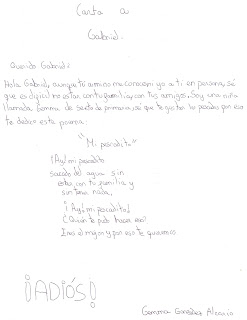 Carta a
Gabriel.
Querido Gabriel:
Hola Gabriel, aunque tu a mi no me conoces ni yo a ti en persona, sé
que es difícil no estar con tu familia, con tus amigos. Soy una niña
llamada Gemma de sexto de primaria, sé que te gustan los pescados por eso
te dedico este poema:
"Mi pescadito"
¡Ay! mi pescadito
sacado del agua sin
estar con tu familia y
sin tener nada,
¡Ay! mi pescadito!
¿Quién te pudo hacer eso?,
Eres el mejor y por eso te queremos
¡ADIÓS!
Gemma González